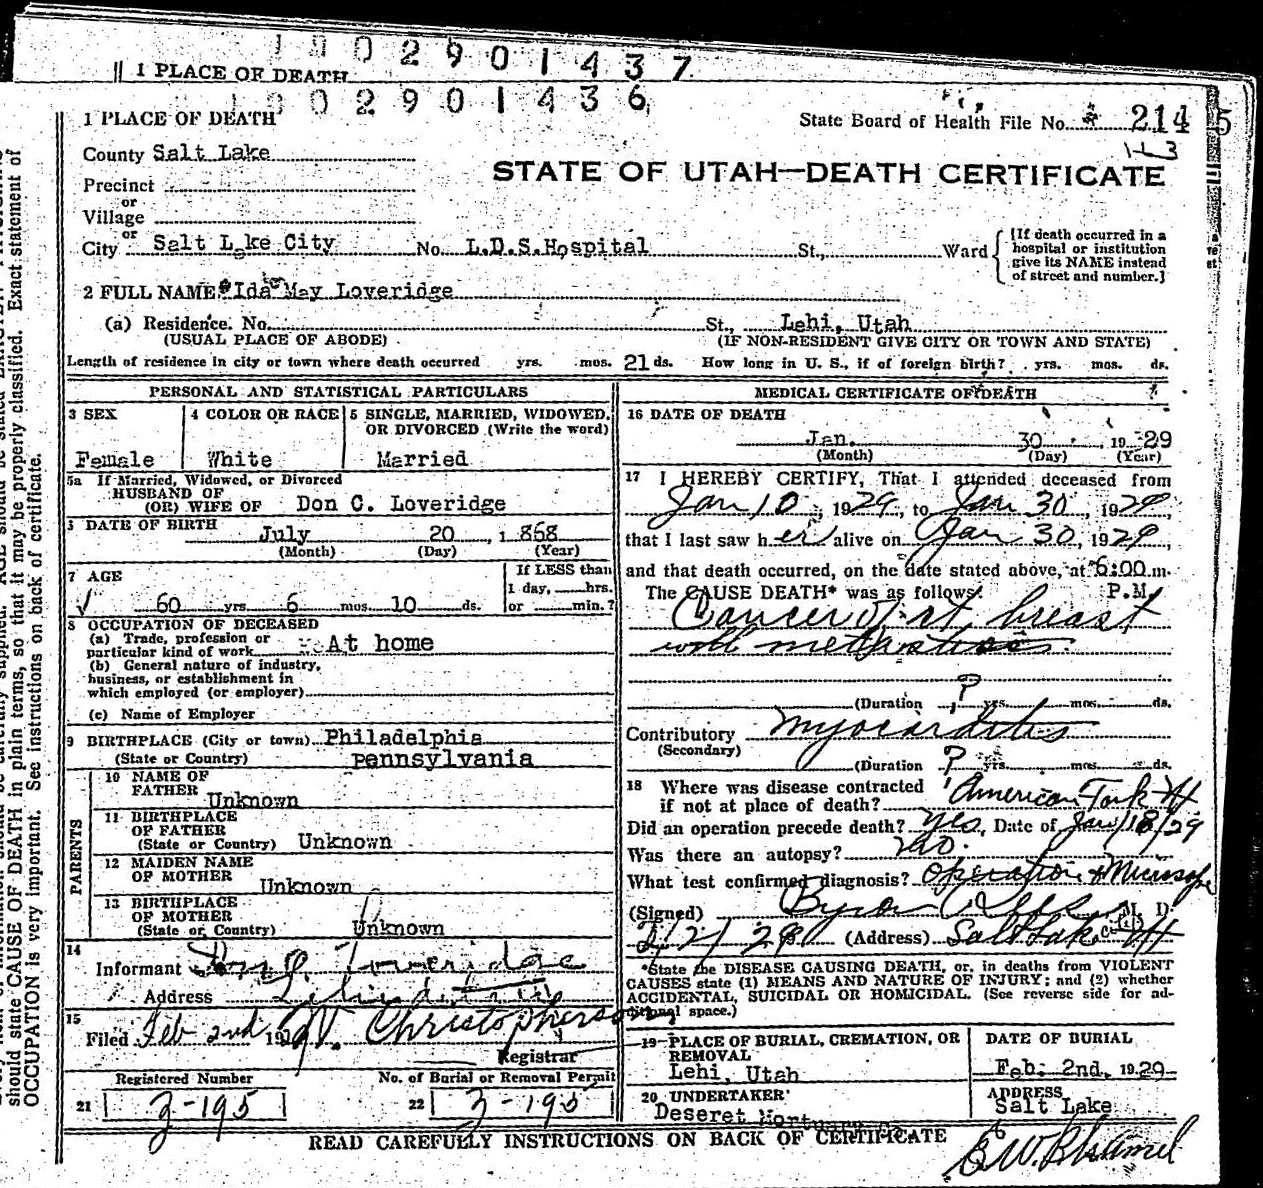 1 0 0 2 9 0 1 4 3 7
1 PLACE OF DEATH
1 0 0 2 9 0 1 4 3 6
1 PLACE OF DEATH
State Board of Health File No. 214 5
County Salt Lake
163
STATE OF UTAH—DEATH CERTIFICATE
Precinct
or
Village
or
City Salt Lake City No. L.D.S.Hospital St., Ward
[If death occurred in a hospital or institution give its NAME instead of street and number.]
2 FULL NAME Ida May Loveridge
(a) Residence. No. St., Lehi, Utah
(USUAL PLACE OF ABODE) (IF NON-RESIDENT GIVE CITY OR TOWN AND STATE)
Length of residence in city or town where death occurred yrs. mos. 21 ds. How long in U. S., if of foreign birth? yrs. mos. ds.
PERSONAL AND STATISTICAL PARTICULARS
3 SEX
Female
4 COLOR OR RACE
White
5 SINGLE, MARRIED, WIDOWED, OR DIVORCED (Write the word)
Married
5a If Married, Widowed, or Divorced
HUSBAND OF
(OR) WIFE OF Don C. Loveridge
DATE OF BIRTH
July 20, 1 868
(Month) (Day) (Year)
7 AGE
60 yrs 6 mos 10 ds.
If LESS than
1 day, hrs.
or min.?
8 OCCUPATION OF DECEASED
(a) Trade, profession or
particular kind of work At home
(b) General nature of industry,
business, or establishment in
which employed (or employer)
(c) Name of Employer
9 BIRTHPLACE (City or town) Philadelphia
(State or Country) Pennsylvania
PARENTS
10 NAME OF
FATHER
Unknown
11 BIRTHPLACE
OF FATHER
(State or Country) Unknown
12 MAIDEN NAME
OF MOTHER
Unknown
13 BIRTHPLACE
OF MOTHER
(State or Country) Unknown
14
Informant Don C. Loveridge
Address Lehi
15
Filed Feb 2nd, 19 Christopherson
Registrar
Registered Number
21 2-195
No. of Burial or Removal Permit
22 2-195
MEDICAL CERTIFICATE OF DEATH
16 DATE OF DEATH
Jan. 30 1929
(Month) (Day) (Year)
17 I HEREBY CERTIFY, That I attended deceased from
Jan 10, 1929, to Jan 30, 1929
that I last saw her alive on Jan 30, 1929,
and that death occurred, on the date stated above, at 6:00 m.
The CAUSE DEATH* was as follows: P.M.
Cancer of rt breast
with
(Duration ? yrs. mos. ds.
Contributory Myocarditis
(Secondary)
(Duration ? yrs. mos. ds.
18 Where was disease contracted
if not at place of death? American Fork Ut
Did an operation precede death? yes, Date of Jan/18/29
Was there an autopsy? no.
What test confirmed diagnosis? Operation + Microscope
(Signed) Byron M. D.
2/2/29 (Address) Salt Lake City Ut
*State the DISEASE CAUSING DEATH, or, in deaths from VIOLENT
CAUSES state (1) MEANS AND NATURE OF INJURY; and (2) whether
ACCIDENTAL, SUICIDAL OR HOMICIDAL. (See reverse side for ad-
ditional space.)
19 PLACE OF BURIAL, CREMATION, OR
REMOVAL
Lehi, Utah
DATE OF BURIAL
Feb. 2nd, 1929
20 UNDERTAKER
Deseret Mortuary
ADDRESS
Salt Lake
READ CAREFULLY INSTRUCTIONS ON BACK OF CERTIFICATE
should state CAUSE OF DEATH in plain terms, so that it may be properly classified. Exact statement of
OCCUPATION is very important. See instructions on back of certificate.